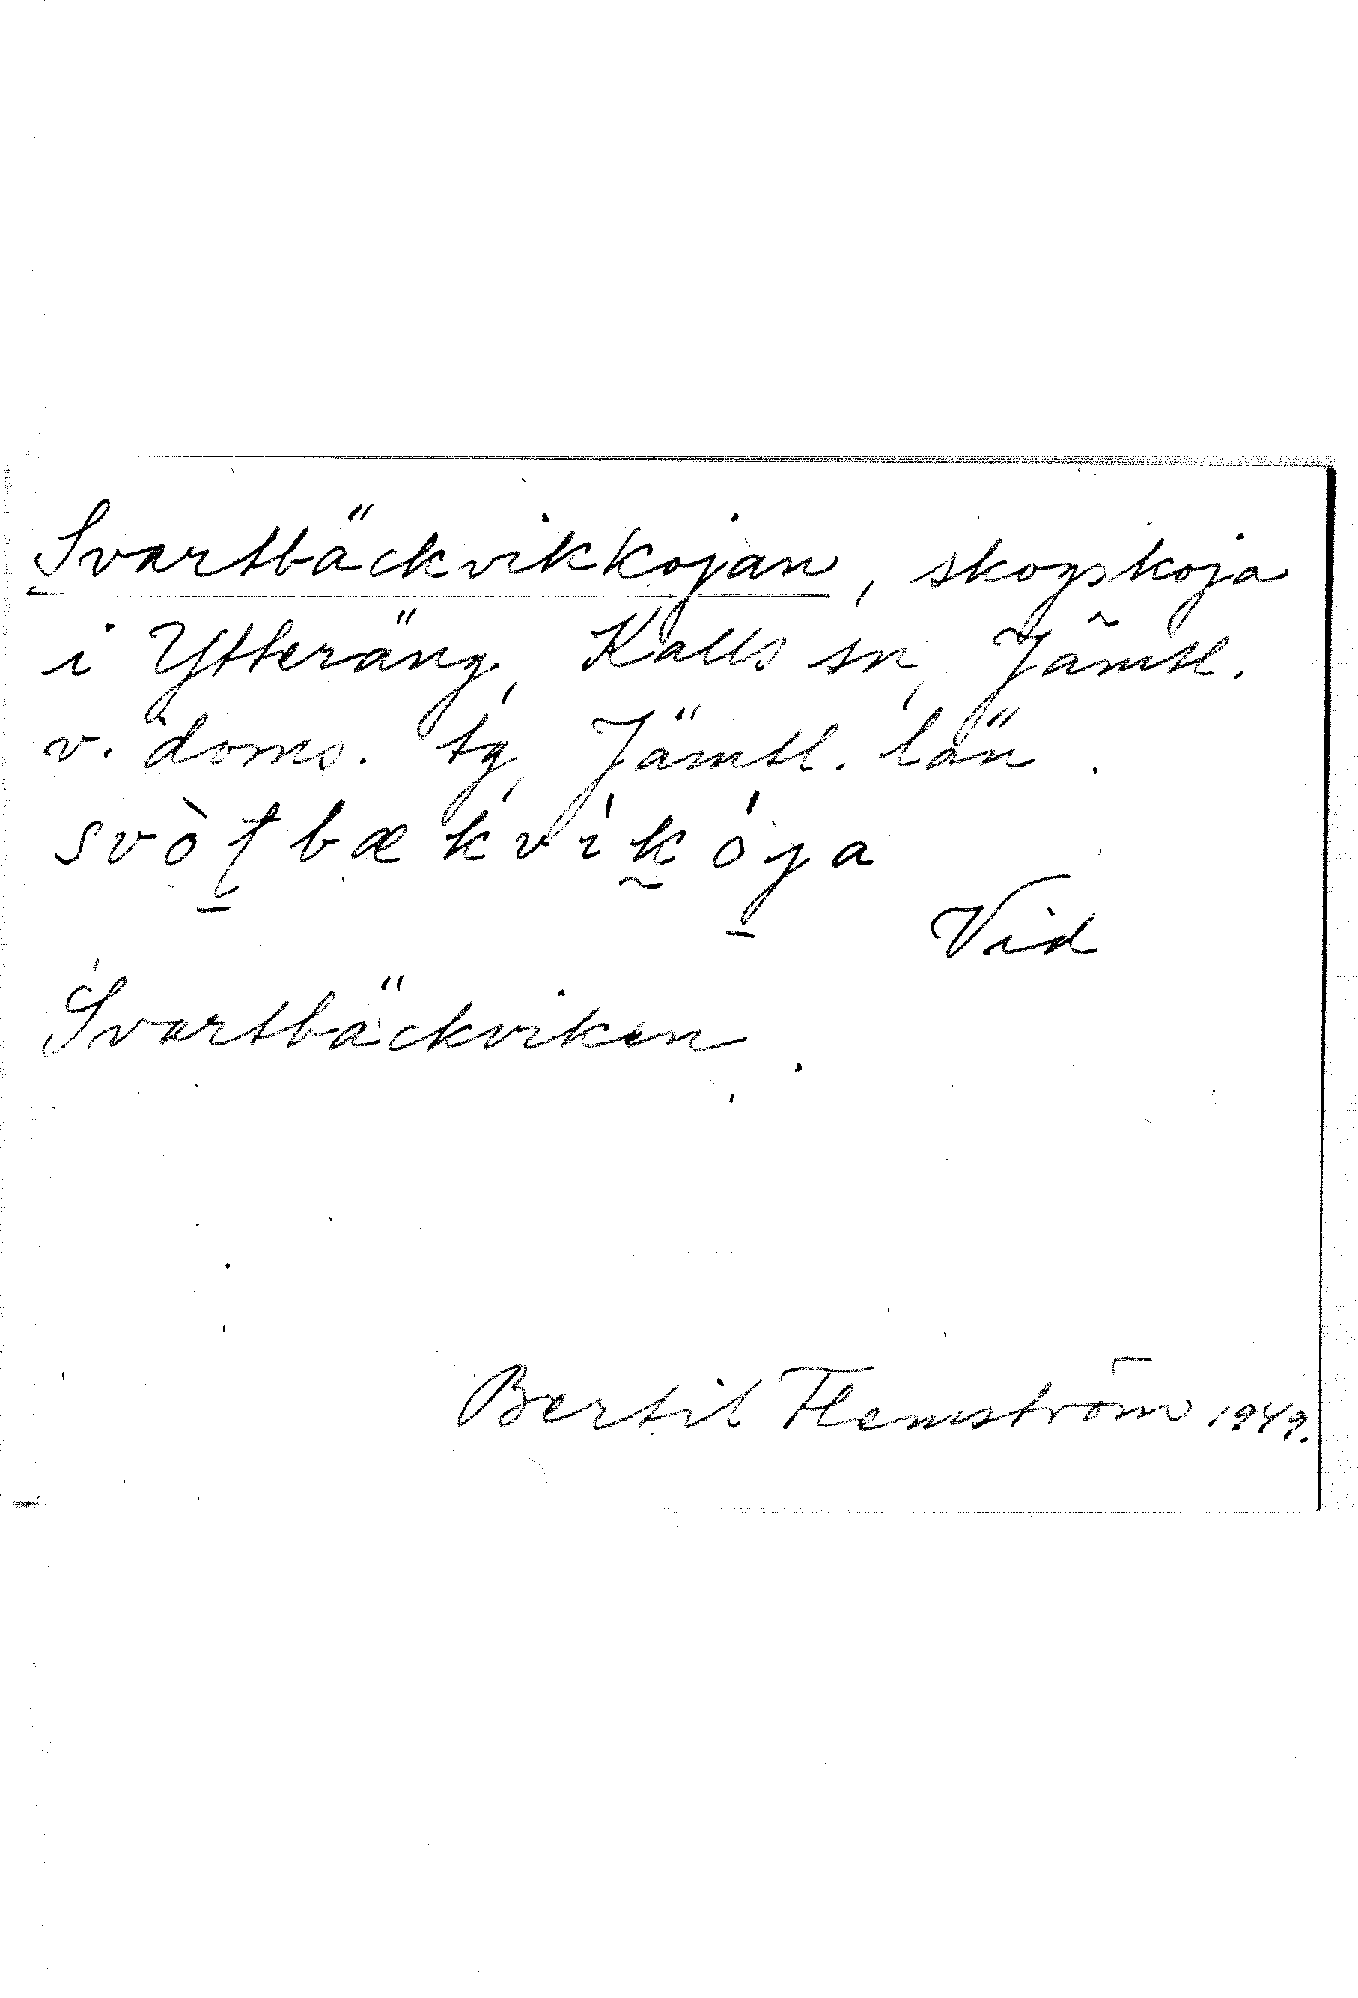 Svartbäckvikkojan, skogskoja
i Ytteräng, Kalls sn, Jämtl.
v. doms. tg, Jämtl. län.
svòʈbækvik̰ója
Vid
Svartbäckviken.
Bertil Flemström 1949.